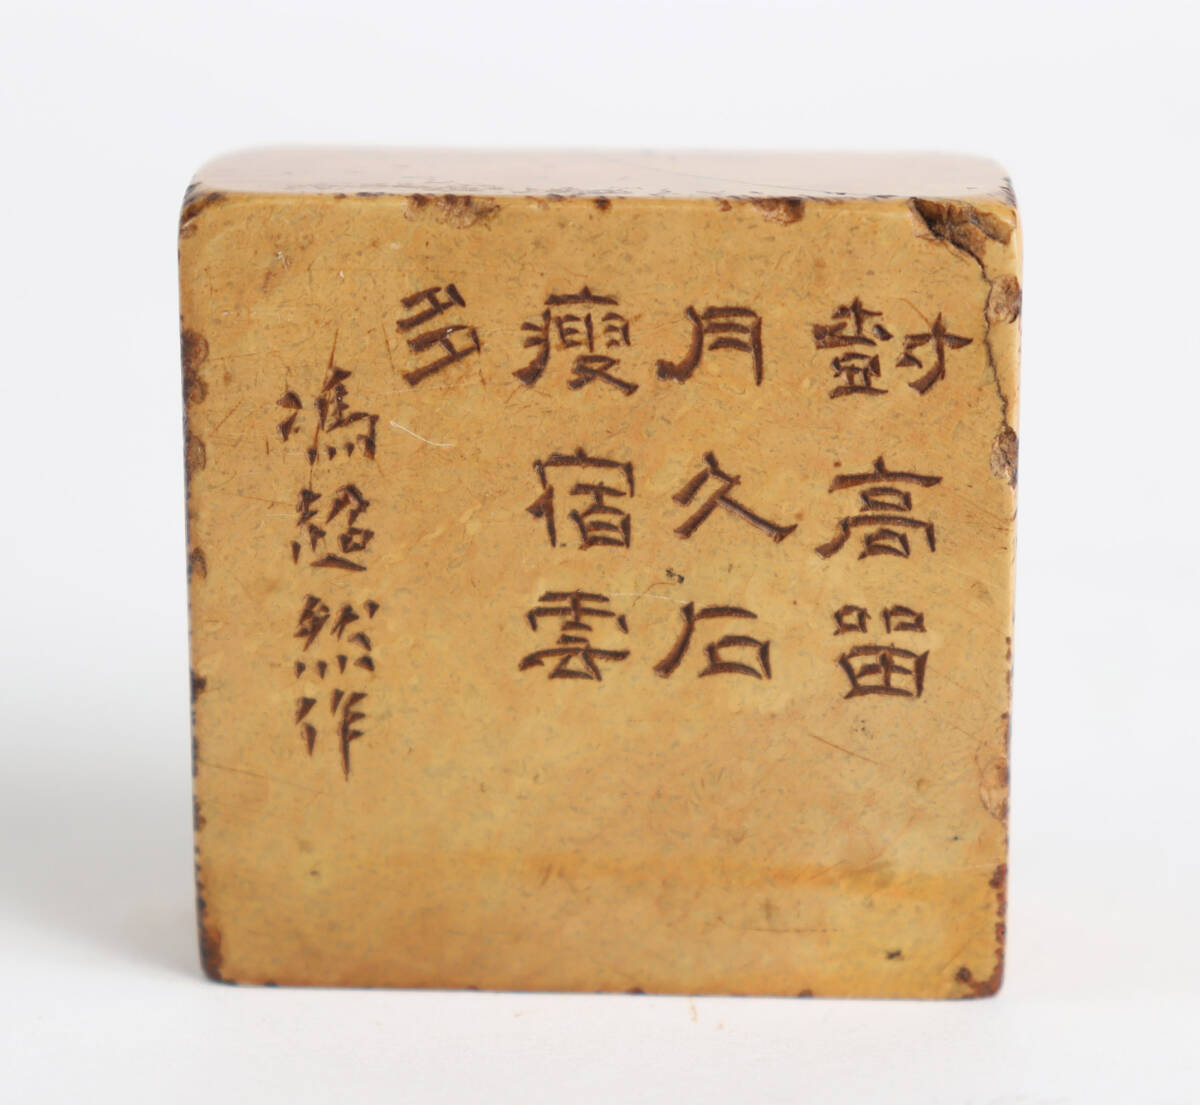 尌高留
月久石
瘦宿雲
多
馮超然作